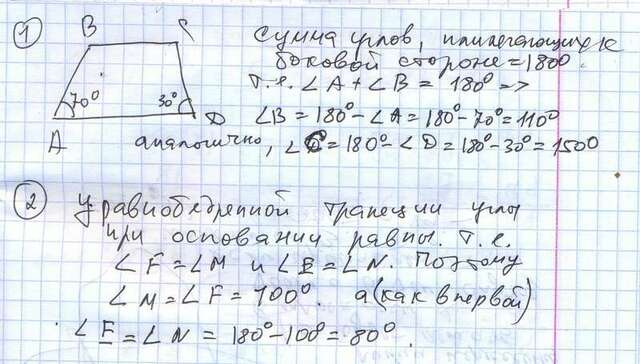 1
B C
Сумма углов, прилегающих к
боковой стороне = 180°.
70° 30°
т.е. ∠A + ∠B = 180° =>
∠B = 180° - ∠A = 180° - 70° = 110°
A D
аналогично, ∠C = 180° - ∠D = 180° - 30° = 150°
2 У равнобедренной трапеции углы
при основании равны. т.е.
∠F = ∠M и ∠E = ∠N. Поэтому
∠M = ∠F = 100°. а (как в первой)
∠E = ∠N = 180° - 100° = 80°.